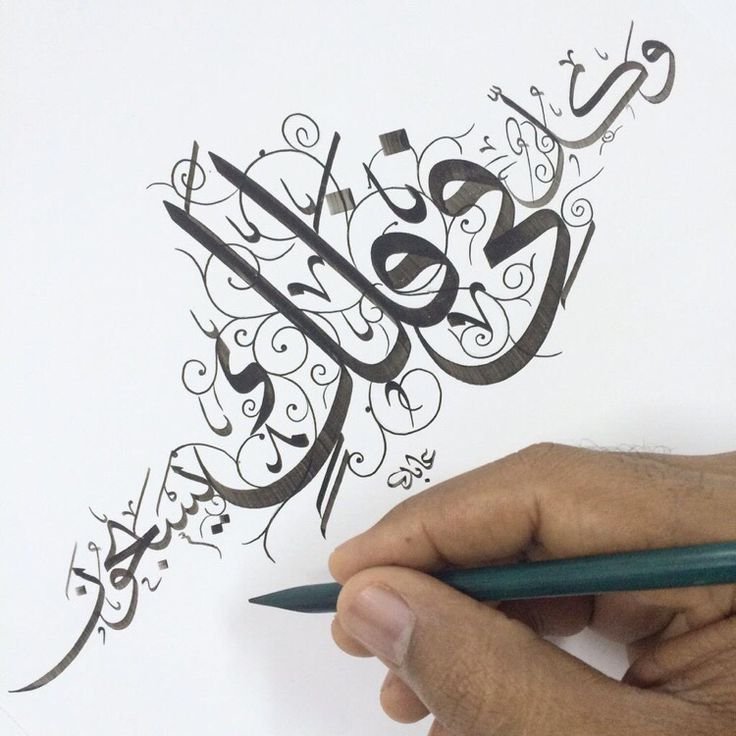 وَكُلٌّ فِي فَلَكٍ يَسْبَحُونَ